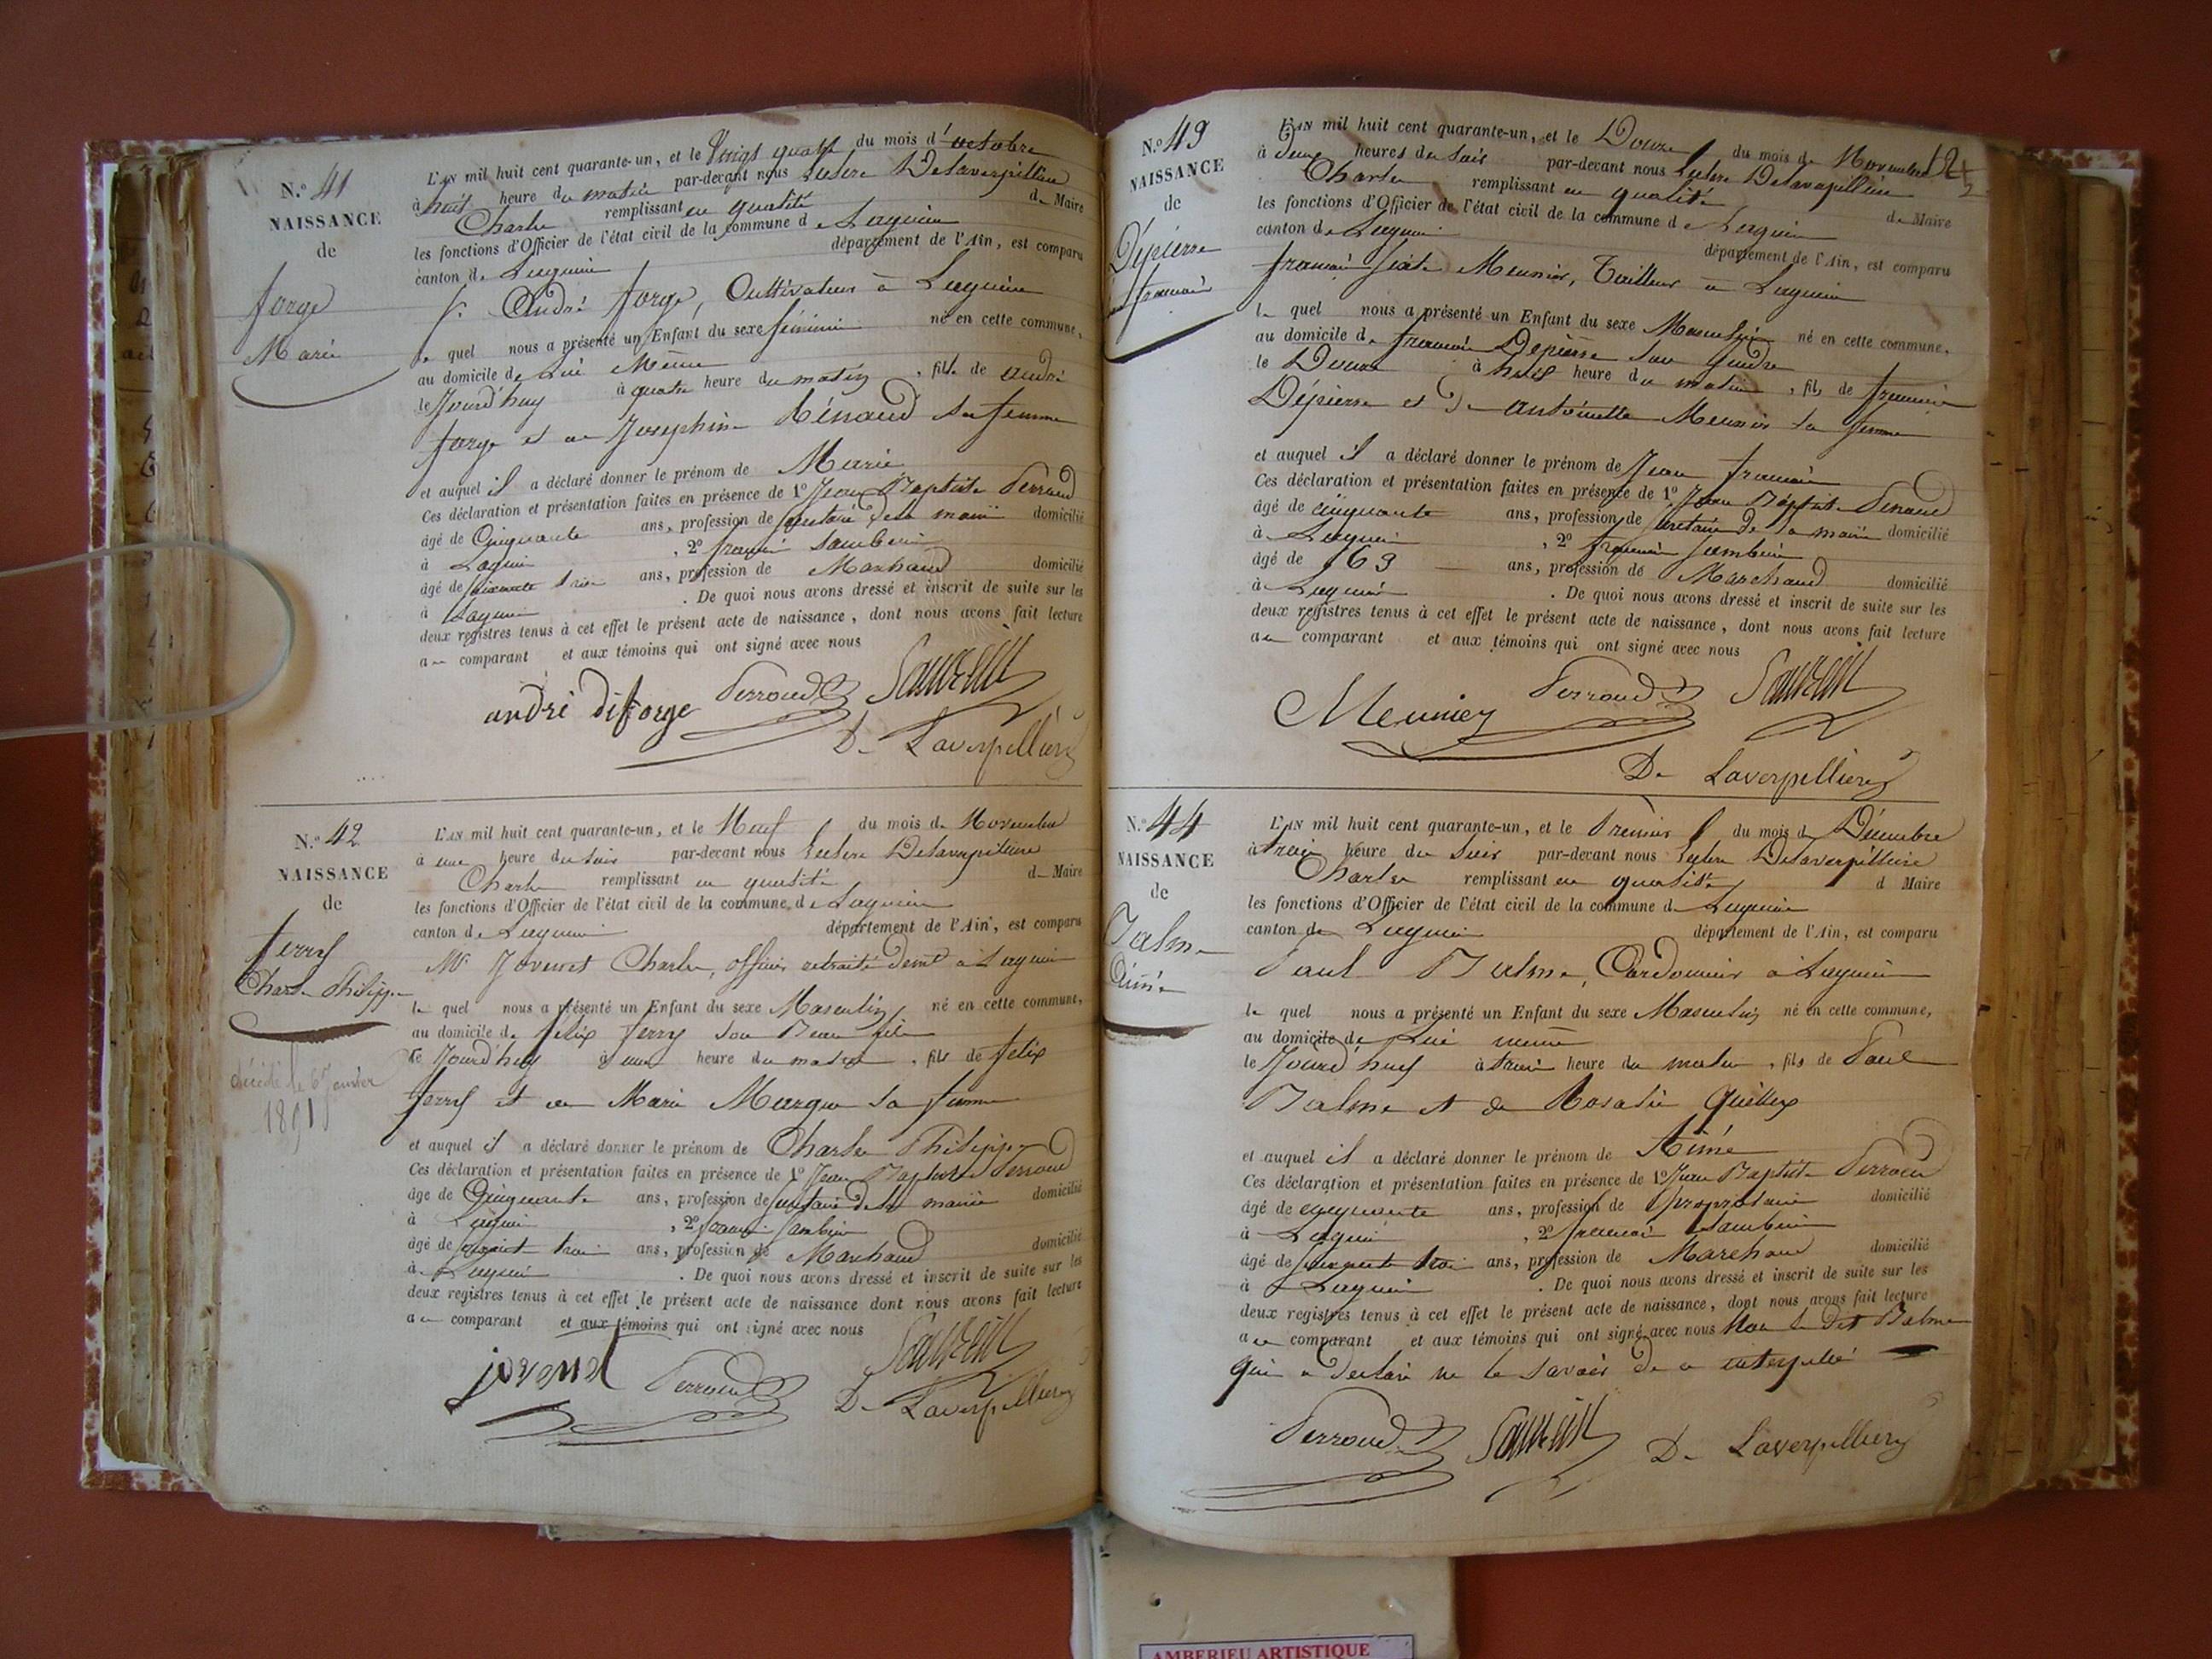 N.° 41
NAISSANCE
de
forge
Marie
L'AN mil huit cent quarante-un, et le Vingt quatre du mois d'octobre
à huit heure du matin par-devant nous Delaverpillière
Charles remplissant en qualité de Maire
les fonctions d'Officier de l'état civil de la commune de Lagnieu
canton de Lagnieu département de l'Ain, est comparu
André forge, Cultivateur à Lagnieu
le quel nous a présenté un Enfant du sexe féminin né en cette commune,
au domicile de Lui Même
le Jourd'huy à quatre heure du matin, fils de andré
forge et de Josephine Rénaud sa femme
et auquel il a déclaré donner le prénom de Marie
Ces déclaration et présentation faites en présence de 1° Jean Baptiste Perroud
âgé de Cinquante ans, profession de secretaire de la mairie domicilié
à Lagnieu, 2° françois
âgé de soixante trois ans, profession de Marchand domicilié
à Lagnieu. De quoi nous avons dressé et inscrit de suite sur les
deux registres tenus à cet effet le présent acte de naissance, dont nous avons fait lecture
au comparant et aux témoins qui ont signé avec nous
andré dit forge Perroud
De Laverpilliere
N.° 42
NAISSANCE
de
ferry
Charles Philippe
décédé le 6 Janvier
L'AN mil huit cent quarante-un, et le Neuf du mois de Novembre
à une heure du soir par-devant nous Delaverpilliere
Charles remplissant en qualité de Maire
les fonctions d'Officier de l'état civil de la commune de Lagnieu
canton de Lagnieu département de l'Ain, est comparu
Mr Jovenet Charles, officier retraité demt à Lagnieu
le quel nous a présenté un Enfant du sexe Masculin né en cette commune,
au domicile de felix ferry son Beau fils
le Jourd'huy à une heure du matin, fils de felix
ferry et de Marie Margue sa femme
et auquel il a déclaré donner le prénom de Charles Philippe
Ces déclaration et présentation faites en présence de 1° Jean Baptiste Perroud
âgé de Cinquante ans, profession de secretaire de la mairie domicilié
à Lagnieu, 2° françois
âgé de soixante trois ans, profession de Marchand domicilié
à Lagnieu. De quoi nous avons dressé et inscrit de suite sur les
deux registres tenus à cet effet le présent acte de naissance dont nous avons fait lecture
au comparant et aux témoins qui ont signé avec nous
jovenet Perroud
De Laverpilliere
N.° 43
NAISSANCE
de
Dépierre
françois
L'AN mil huit cent quarante-un, et le Douze du mois de Novembre
à Deux heures du soir par-devant nous Delaverpilliere
Charles remplissant en qualité de Maire
les fonctions d'Officier de l'état civil de la commune de Lagnieu
canton de Lagnieu département de l'Ain, est comparu
françois Meunier, Tailleur à Lagnieu
le quel nous a présenté un Enfant du sexe Masculin né en cette commune,
au domicile de françois Dépierre son gendre
le Douze à heure du matin, fils de françois
Dépierre et de antoinette Meunier sa femme
et auquel il a déclaré donner le prénom de Jean françois
Ces déclaration et présentation faites en présence de 1° Jean Baptiste Perroud
âgé de cinquante ans, profession de secretaire de la mairie domicilié
à Lagnieu, 2° françois
âgé de 63 ans, profession de Marchand domicilié
à Lagnieu. De quoi nous avons dressé et inscrit de suite sur les
deux registres tenus à cet effet le présent acte de naissance, dont nous avons fait lecture
au comparant et aux témoins qui ont signé avec nous
Meunier Perroud
De Laverpilliere
N.° 44
NAISSANCE
de
Balme
Aimé
L'AN mil huit cent quarante-un, et le Premier du mois de Décembre
à trois heure du soir par-devant nous Delaverpilliere
Charles remplissant en qualité d Maire
les fonctions d'Officier de l'état civil de la commune de Lagnieu
canton de Lagnieu département de l'Ain, est comparu
Paul Balme, Cordonnier à Lagnieu
le quel nous a présenté un Enfant du sexe Masculin né en cette commune,
au domicile de Lui même
le Jourd'huy à trois heure du matin, fils de Paul
Balme et de Rosalie
et auquel il a déclaré donner le prénom de Aimé
Ces déclaration et présentation faites en présence de 1° Jean Baptiste Perroud
âgé de cinquante ans, profession de propriétaire domicilié
à Lagnieu, 2° françois
âgé de soixante trois ans, profession de Marchand domicilié
à Lagnieu. De quoi nous avons dressé et inscrit de suite sur les
deux registres tenus à cet effet le présent acte de naissance, dont nous avons fait lecture
au comparant et aux témoins qui ont signé avec nous Non le dit Balme
qui a declaré ne le savoir de ce interpellé
Perroud De Laverpilliere
AMBERIEU ARTISTIQUE